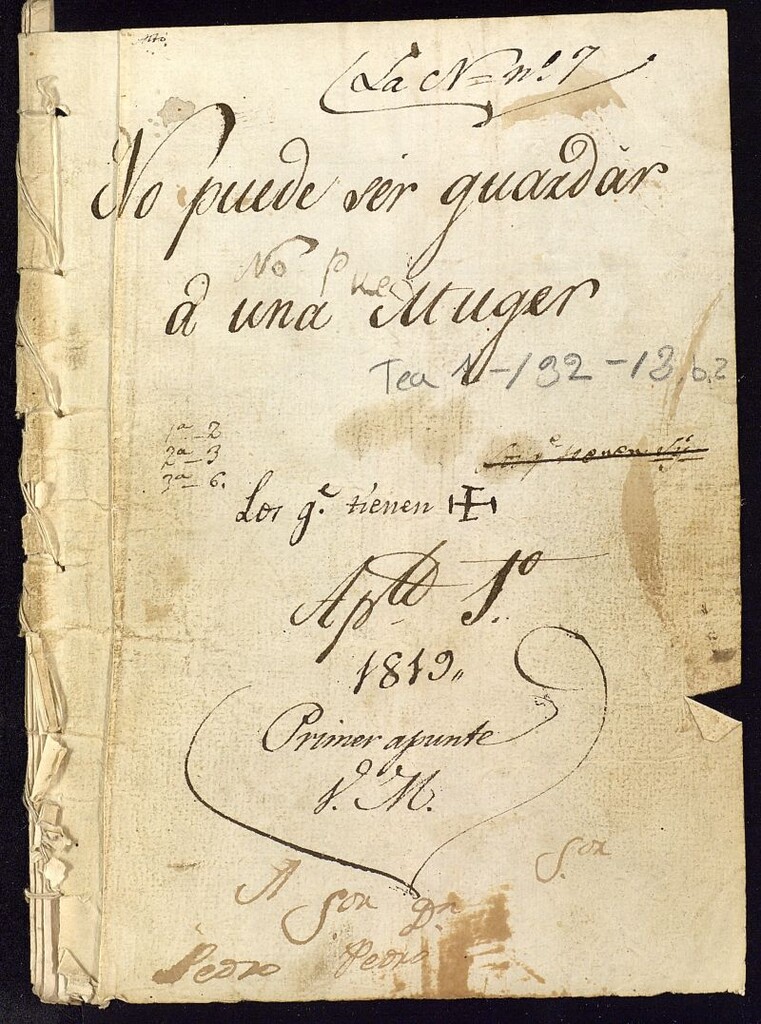 La N= nº 7
No puede ser guardar
No P
a una Muger
Tea 1-192-13, b.2
1ª_2
2ª_3
3ª_6.
Los qᵉ tienen
Los qᵉ. tienen ✠
Apᵗᵒ 1º
1819,,
Primer apunte
V. M.
Sor
A Sor Dn
Pedro Pedro